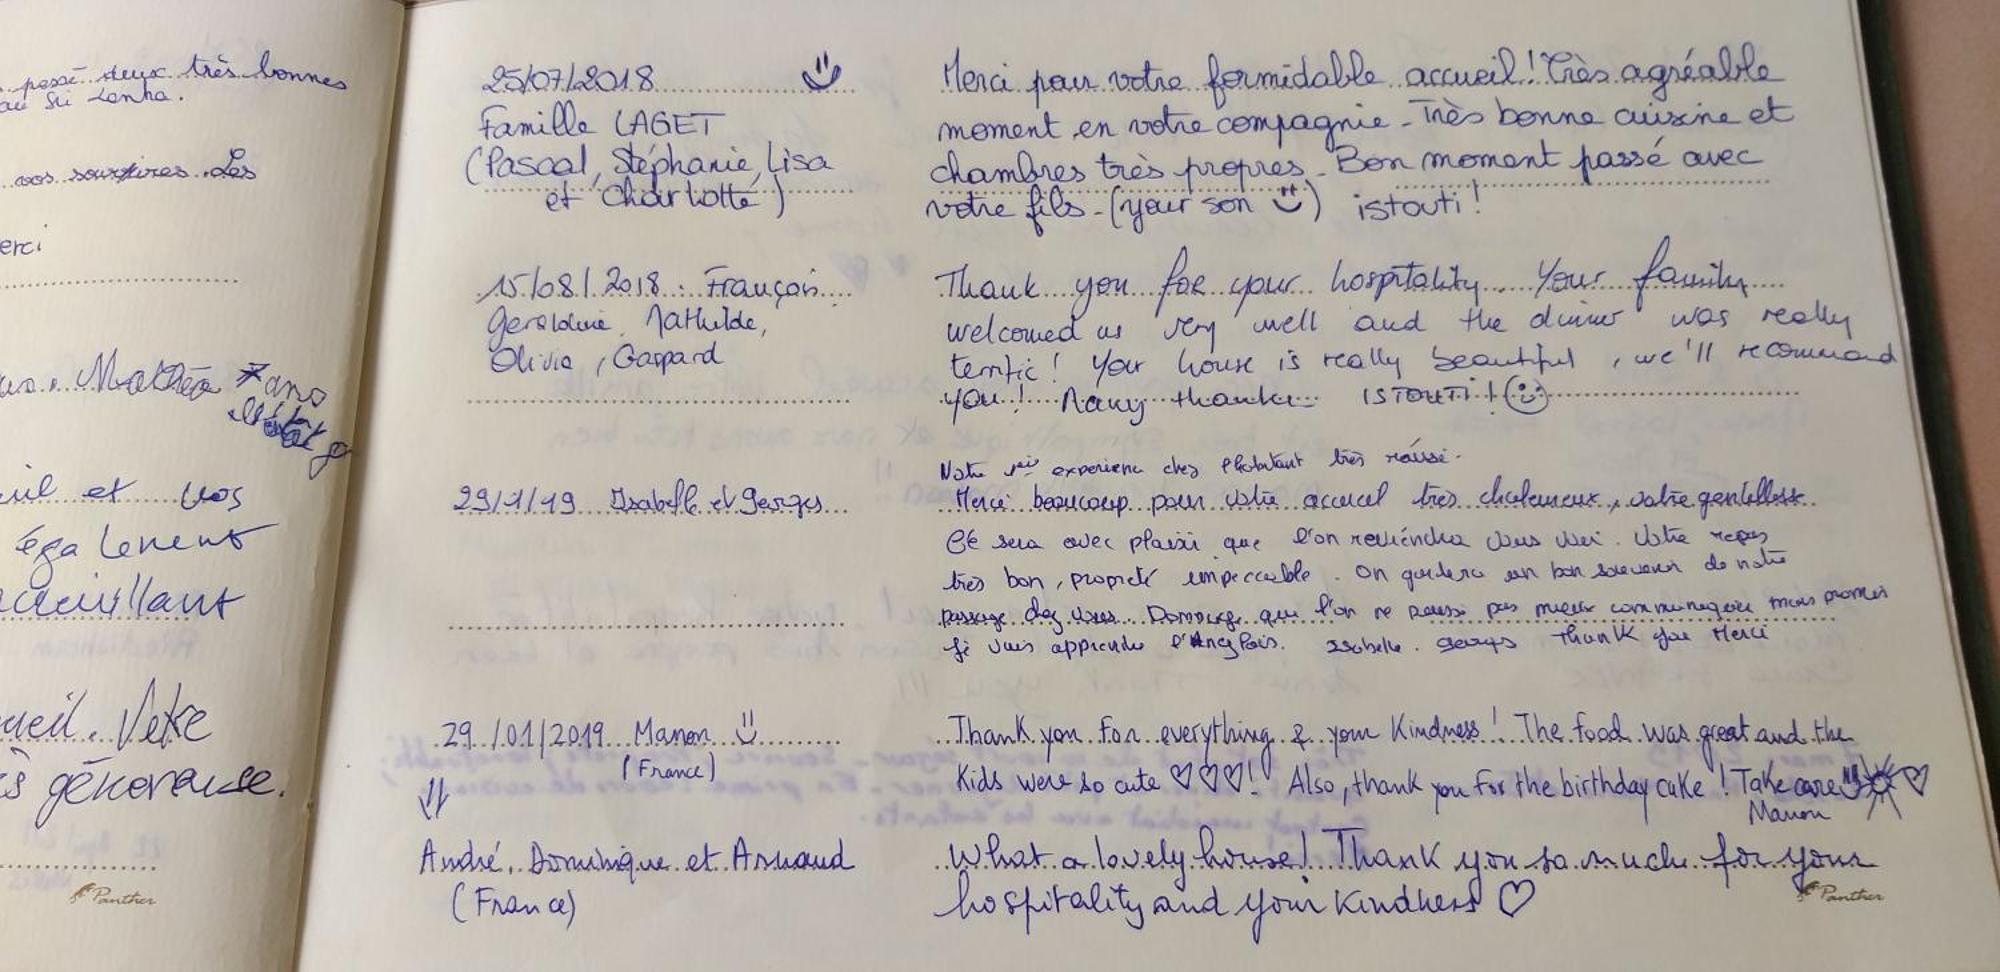 passé deux très bonnes
au Sri Lanka.
vos sourires. Les
erci
Mathéo 7 ans
et vos
également
accueillant
ueil. Votre
s généreuse.
Panther
25/07/2018
Famille LAGET
(Pascal, Stéphanie, Lisa
et Charlotte)
Merci pour votre formidable accueil! Très agréable
moment en votre compagnie - Très bonne cuisine et
chambres très propres. Bon moment passé avec
votre fils - (your son) istouti!
15/08/2018 : François
Geraldine, Mathilde,
Olivia, Gaspard
Thank you for your hospitality. Your family
welcomed us very well and the dinner was really
terrific! Your house is really beautiful, we'll recommand
you! Many thanks ISTOUTI!
29/1/19 Isabelle et Georges
Notre experience chez l'habitant très réussi.
Merci beaucoup pour votre accueil très chaleureux, votre gentillesse
Ce sera avec plaisir que l'on reviendra vous voir. Votre repas
très bon, propreté impeccable. On gardera un bon souvenir de notre
passage chez vous. Dommage que l'on ne puisse pas mieux communiquer mais promis
je vais apprendre l'Anglais. Isabelle. Georges Thank you Merci
29/01/2019 Manon
(France)
Thank you for everything & your kindness! The food was great and the
kids were so cute ♡♡♡! Also, thank you for the birthday cake! Take care ♡
Manon
André, Dominique et Arnaud
(France)
What a lovely house! Thank you so much for your
hospitality and your kindness ♡
Panther